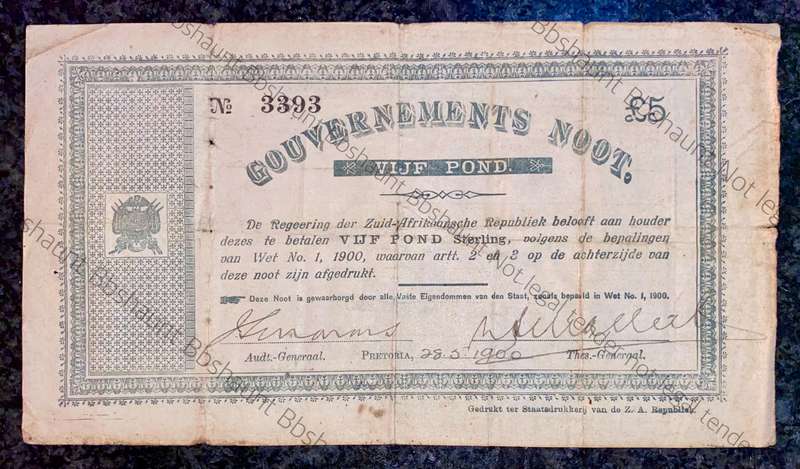 № 3393
£5
GOUVERNEMENTS NOOT.
VIJF POND.
De Regeering der Zuid-Afrikaansche Republiek belooft aan houder
dezes te betalen VIJF POND Sterling, volgens de bepalingen
van Wet No. 1, 1900, waarvan artt. 2 en 3 op de achterzijde van
deze noot zijn afgedrukt.
Deze Noot is gewaarborgd door alle Vaste Eigendommen van den Staat, zooals bepaald in Wet No. 1, 1900.
Audt.-Generaal. PRETORIA, 28.5.1900 Thes.-Generaal.
Gedrukt ter Staatsdrukkerij van de Z. A. Republiek.
Bbshaunt Bbshaunt Bbshaunt Not legal tender not legal tender
Bbshaunt Bbshaunt Not legal
Bbshaunt Bbshaunt Bbshaunt